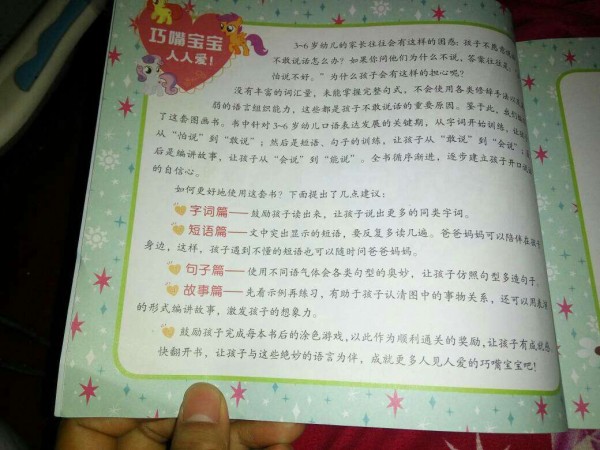 巧嘴宝宝
人人爱！
3~6岁幼儿的家长往往会有这样的困惑：孩子不愿意说
不敢说话怎么办？如果你问他们为什么不说，答案往往是，
怕说不好。”为什么孩子会有这样的担心呢？
没有丰富的词汇量，未能掌握完整句式，不会使用各类修辞手法以及
弱的语言组织能力，这些都是孩子不敢说话的重要原因。鉴于此，我们
了这套图画书。书中针对3~6岁幼儿口语表达发展的关键期，从字词开始训练，让
从“怕说”到“敢说”；然后是短语、句子的训练，让孩子从“敢说”到“会说”；
后是编讲故事，让孩子从“会说”到“能说”。全书循序渐进，逐步建立孩子开口说
的自信心。
如何更好地使用这套书？下面提出了几点建议：
字词篇——鼓励孩子读出来，让孩子说出更多的同类字词。
短语篇——文中突出显示的短语，要反复多读几遍。爸爸妈妈可以陪伴在孩子
身边，这样，孩子遇到不懂的短语也可以随时问爸爸妈妈。
句子篇——使用不同语气体会各类句型的奥妙，让孩子仿照句型多造句子。
故事篇——先看示例再练习，有助于孩子认清图中的事物关系，还可以用表演
的形式编讲故事，激发孩子的想象力。
鼓励孩子完成每本书后的涂色游戏，以此作为顺利通关的奖励，让孩子有成就感
快翻开书，让孩子与这些绝妙的语言为伴，成就更多人见人爱的巧嘴宝宝吧！